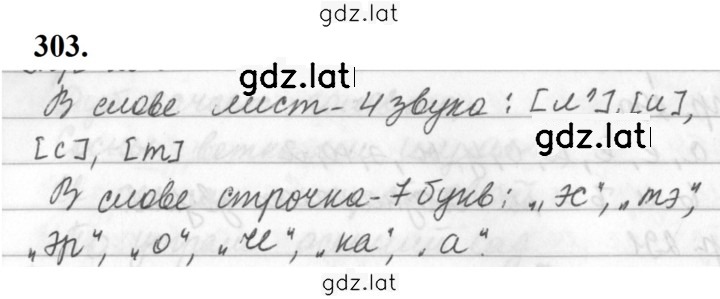 gdz.lat
303.
gdz.lat
В слове лист - 4 звука: [л'], [и],
gdz.lat
[с], [т]
В слове строчка - 7 букв: „эс", „тэ",
„эр", „о", „че", „ка", „а".
gdz.lat